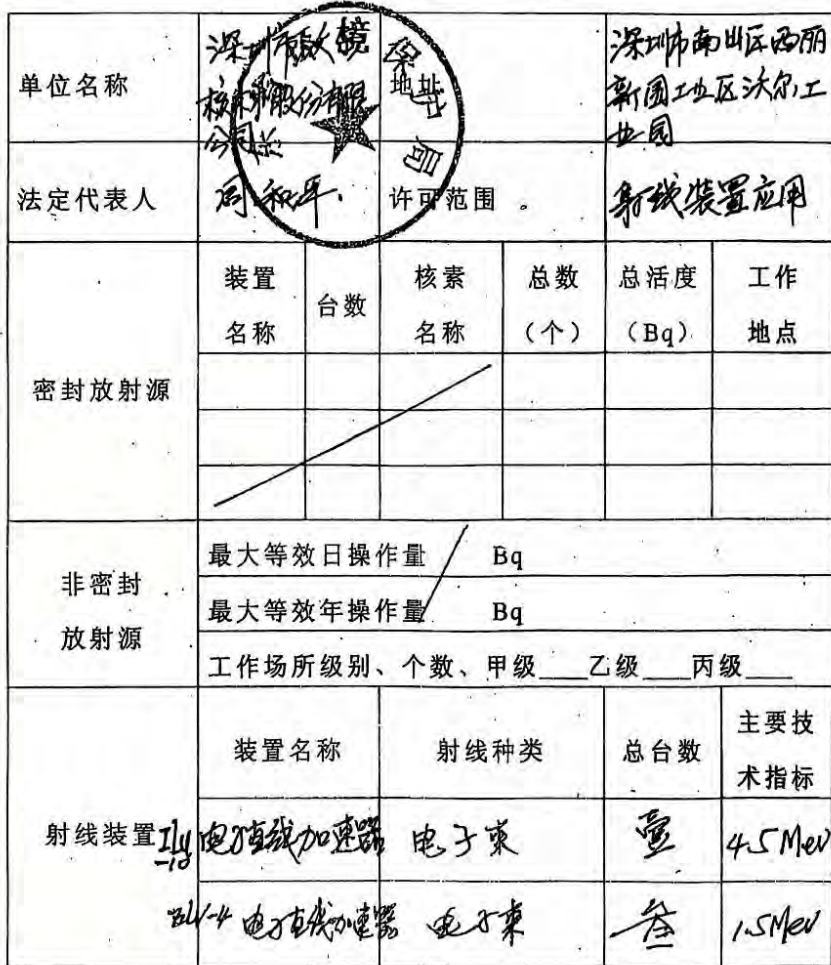 单位名称
深圳市沃尔
核材料股份有限
公司
地址
深圳市南山区西丽
新围工业区沃尔工
业园
环境保护局
法定代表人
周和平
许可范围
射线装置应用
密封放射源
装置
名称
台数
核素
名称
总数
(个)
总活度
(Bq)
工作
地点
非密封
放射源
最大等效日操作量 Bq
最大等效年操作量 Bq
工作场所级别、个数、甲级___乙级___丙级___
射线装置
装置名称
射线种类
总台数
主要技
术指标
电子直线加速器
电子束
壹
4.5 Mev
ELV-4 电子直线加速器
电子束
叁
1.5Mev